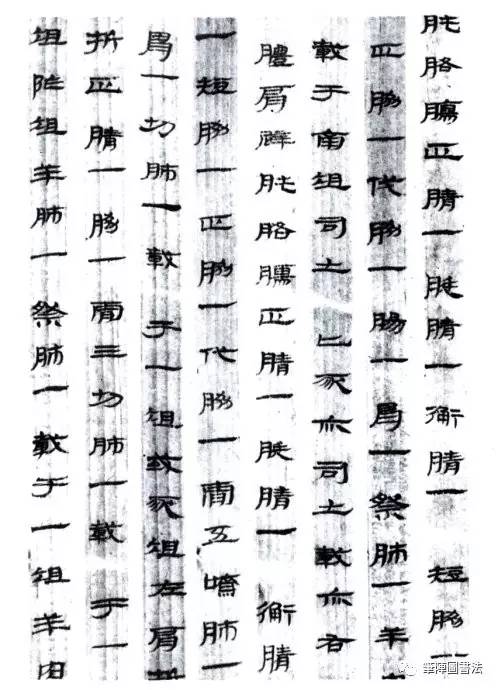 肫胳臑正腈一脡腈一衡腈一短脅一
正脅一代脅一腸一胃一祭肺一羊
載于南俎司士匕豕亦司士載亦右
體肩髀肫胳臑正腈一脡腈一衡腈
一短脅一正脅一代脅一膚五嚌肺一
胃一切肺一載于一俎豕俎左肩
折正腈一脅一膚三切肺一載于一
俎阼俎羊肺一祭肺一載于一俎羊肉
筆陣圖書法